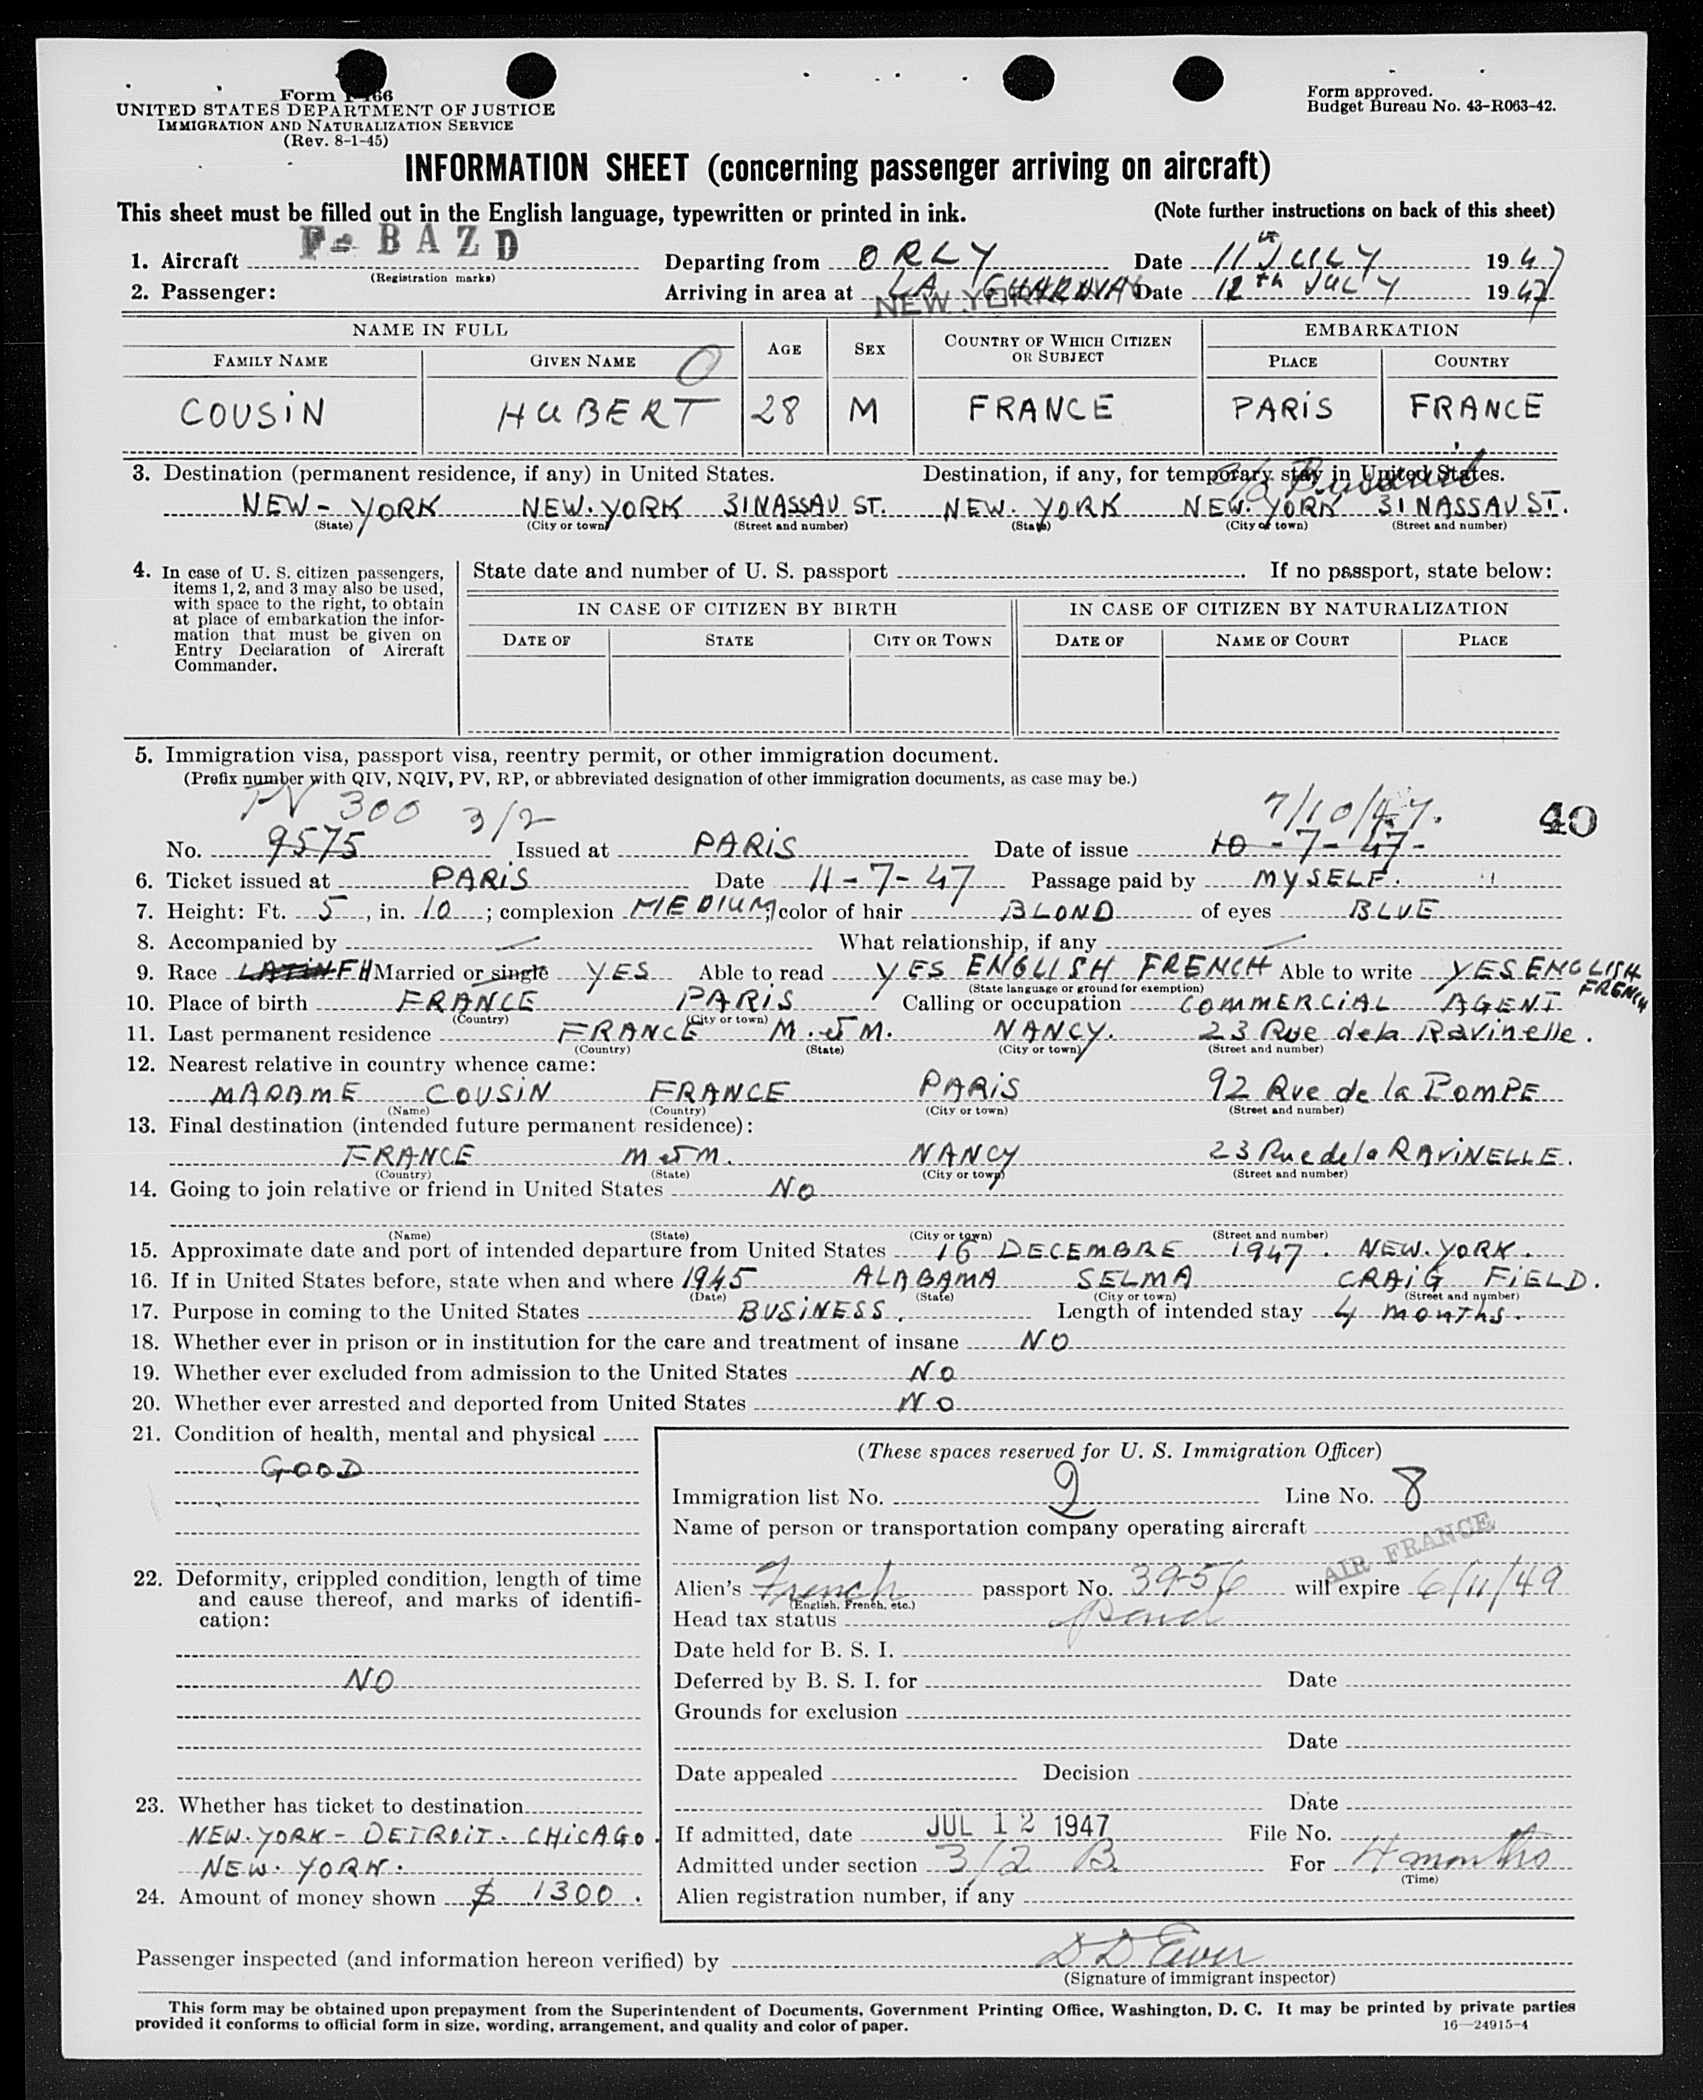 Form I-466
UNITED STATES DEPARTMENT OF JUSTICE
IMMIGRATION AND NATURALIZATION SERVICE
(Rev. 8-1-45)
Form approved.
Budget Bureau No. 43-R063-42.
INFORMATION SHEET (concerning passenger arriving on aircraft)
This sheet must be filled out in the English language, typewritten or printed in ink. (Note further instructions on back of this sheet)
1. Aircraft F-BAZD Departing from ORLY Date 11 JULY 1947
(Registration marks)
2. Passenger: Arriving in area at LA GUARDIA NEW YORK Date 12th JULY 1947
NAME IN FULL AGE SEX COUNTRY OF WHICH CITIZEN OR SUBJECT EMBARKATION
FAMILY NAME GIVEN NAME PLACE COUNTRY
O
COUSIN HUBERT 28 M FRANCE PARIS FRANCE
3. Destination (permanent residence, if any) in United States. Destination, if any, for temporary stay in United States.
NEW-YORK NEW.YORK 31 NASSAU ST. NEW.YORK NEW.YORK 31 NASSAU ST.
(State) (City or town) (Street and number) (State) (City or town) (Street and number)
4. In case of U. S. citizen passengers, items 1, 2, and 3 may also be used, with space to the right, to obtain at place of embarkation the information that must be given on Entry Declaration of Aircraft Commander.
State date and number of U. S. passport . If no passport, state below:
IN CASE OF CITIZEN BY BIRTH IN CASE OF CITIZEN BY NATURALIZATION
DATE OF STATE CITY OR TOWN DATE OF NAME OF COURT PLACE
5. Immigration visa, passport visa, reentry permit, or other immigration document.
(Prefix number with QIV, NQIV, PV, RP, or abbreviated designation of other immigration documents, as case may be.)
PV 300 3/2 7/10/47. 40
No. 9575 Issued at PARIS Date of issue 10-7-47-
6. Ticket issued at PARIS Date 11-7-47 Passage paid by MYSELF.
7. Height: Ft. 5, in. 10; complexion MEDIUM; color of hair BLOND of eyes BLUE
8. Accompanied by — What relationship, if any —
9. Race LATIN FH Married or single YES Able to read YES ENGLISH FRENCH Able to write YES ENGLISH FRENCH
(State language or ground for exemption)
10. Place of birth FRANCE PARIS Calling or occupation COMMERCIAL AGENT
(Country) (City or town)
11. Last permanent residence FRANCE M. et M. NANCY. 23 Rue de la Ravinelle.
(Country) (State) (City or town) (Street and number)
12. Nearest relative in country whence came:
MADAME COUSIN FRANCE PARIS 92 Rue de la POMPE
(Name) (Country) (City or town) (Street and number)
13. Final destination (intended future permanent residence):
FRANCE M et M. NANCY 23 Rue de la RAVINELLE.
(Country) (State) (City or town) (Street and number)
14. Going to join relative or friend in United States NO
(Name) (State) (City or town) (Street and number)
15. Approximate date and port of intended departure from United States 16 DECEMBRE 1947. NEW.YORK.
16. If in United States before, state when and where 1945 ALABAMA SELMA CRAIG FIELD.
(Date) (State) (City or town) (Street and number)
17. Purpose in coming to the United States BUSINESS. Length of intended stay 4 months.
18. Whether ever in prison or in institution for the care and treatment of insane NO
19. Whether ever excluded from admission to the United States NO
20. Whether ever arrested and deported from United States NO
21. Condition of health, mental and physical
GOOD
22. Deformity, crippled condition, length of time and cause thereof, and marks of identification:
NO
23. Whether has ticket to destination
NEW.YORK-DETROIT.CHICAGO.
NEW.YORK.
24. Amount of money shown $ 1300.
(These spaces reserved for U. S. Immigration Officer)
Immigration list No. 2 Line No. 8
Name of person or transportation company operating aircraft
AIR FRANCE
Alien's French passport No. 3956 will expire 6/11/49
(English, French, etc.)
Head tax status paid
Date held for B. S. I.
Deferred by B. S. I. for Date
Grounds for exclusion
Date
Date appealed Decision
Date
If admitted, date JUL 12 1947 File No.
Admitted under section 3/2 B For 4 months
(Time)
Alien registration number, if any
Passenger inspected (and information hereon verified) by
(Signature of immigrant inspector)
This form may be obtained upon prepayment from the Superintendent of Documents, Government Printing Office, Washington, D. C. It may be printed by private parties
provided it conforms to official form in size, wording, arrangement, and quality and color of paper. 16—24915-4